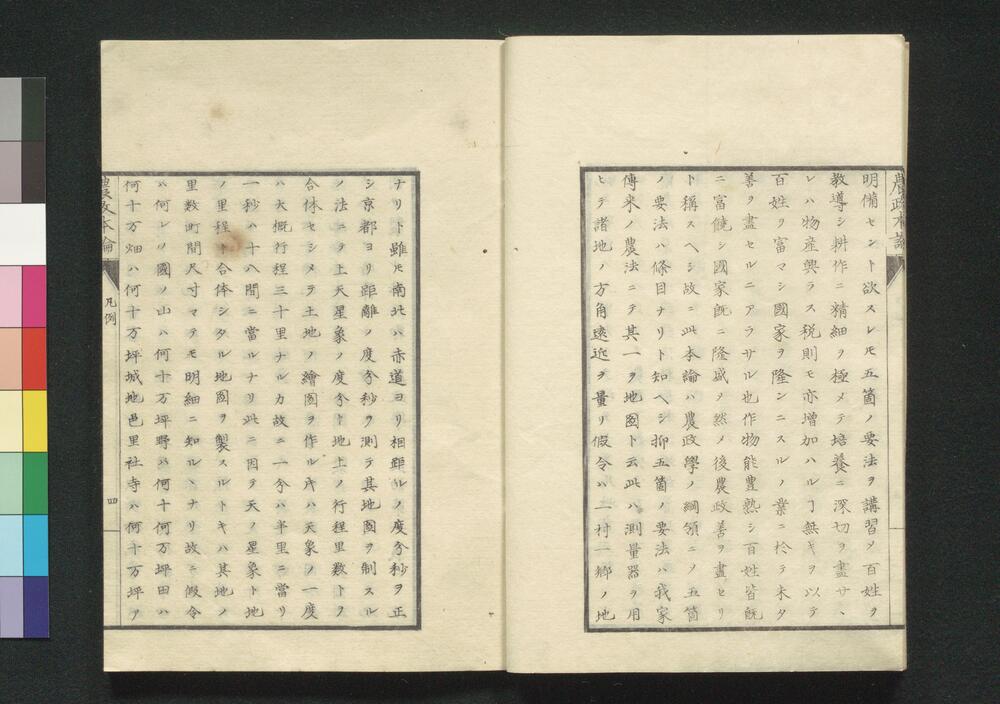 農政本論
明備セント欲スレ𪜈五箇ノ要法ヲ講習メ百姓ヲ
教導シ耕作ニ精細ヲ極メテ培養ニ深切ヲ盡サヽ
レハ物産興ラス税則モ亦増加ハルヿ無キヲ以テ
百姓ヲ富マシ國家ヲ隆ンニスルノ業ニ於テ未タ
善ヲ盡セルニアラサル也作物能豊熟シ百姓皆既
ニ富饒シ國家既ニ隆盛メ然メ後農政善ヲ盡セリ
ト稱スヘシ故ニ此本論ハ農政學ノ綱領ニノ五箇
ノ要法ハ條目ナリト知ヘシ抑五箇ノ要法ハ我家
傳来ノ農法ニテ其一ヲ地圖ト云此ハ測量器ヲ用
ヒテ諸地ノ方角遠近ヲ量リ假令ハ一村一郷ノ地
ナリト雖𪜈南北ハ赤道ヨリ相距ルノ度分秒ヲ正
シ京都ヨリ距離ノ度分秒ヲ測テ其地圖ヲ制スル
ノ法ニヲ上天星象ノ度分ト地上ノ行程里数トヲ
合体セシメテ土地ノ繪圖ヲ作ル𪜈ハ天象ノ一度
ハ大概行程三十里ナルカ故ニ一分ハ半里ニ當リ
一秒ハ十八間ニ當ルナリ此ニ因テ天ノ星象ト地
ノ里程ト合体シタル地圖ヲ製スルトキハ其地ノ
里数町間尺寸マテモ明細ニ知ルヽナリ故ニ假令
ハ何レノ國ノ山ハ何十万坪野ハ何十何万坪田ハ
何十万畑ハ何十万坪城地邑里社寺ハ何十万坪ヲ
農政本論
凡例
四